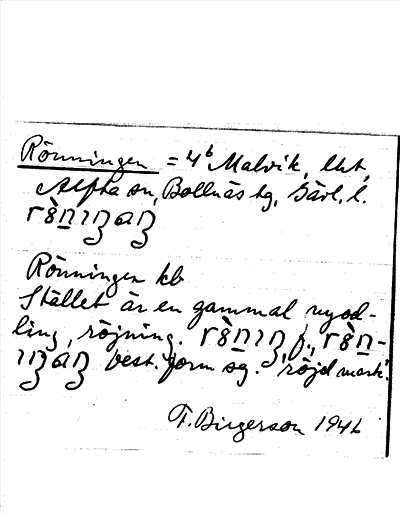 Rönningen = 4ᵇ Malvik, lht,
Alfta sn, Bollnäs tg, Gävl. l.
Rönningen kb
Stället är en gammal nyod-
ling, röjning. f.,
best. form sg. "röjd mark".
F. Birgerson 1946